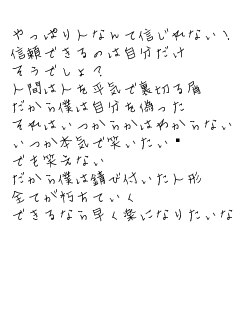 やっぱり人なんて信じれない!
信頼できるのは自分だけ
そうでしょ?
人間は人を平気で裏切る屑
だから僕は自分を偽った
それはいつからかはわからない
いつか本気で笑いたい・
でも笑えない
だから僕は錆び付いた人形
全てが朽ちていく
できるなら早く楽になりたいな